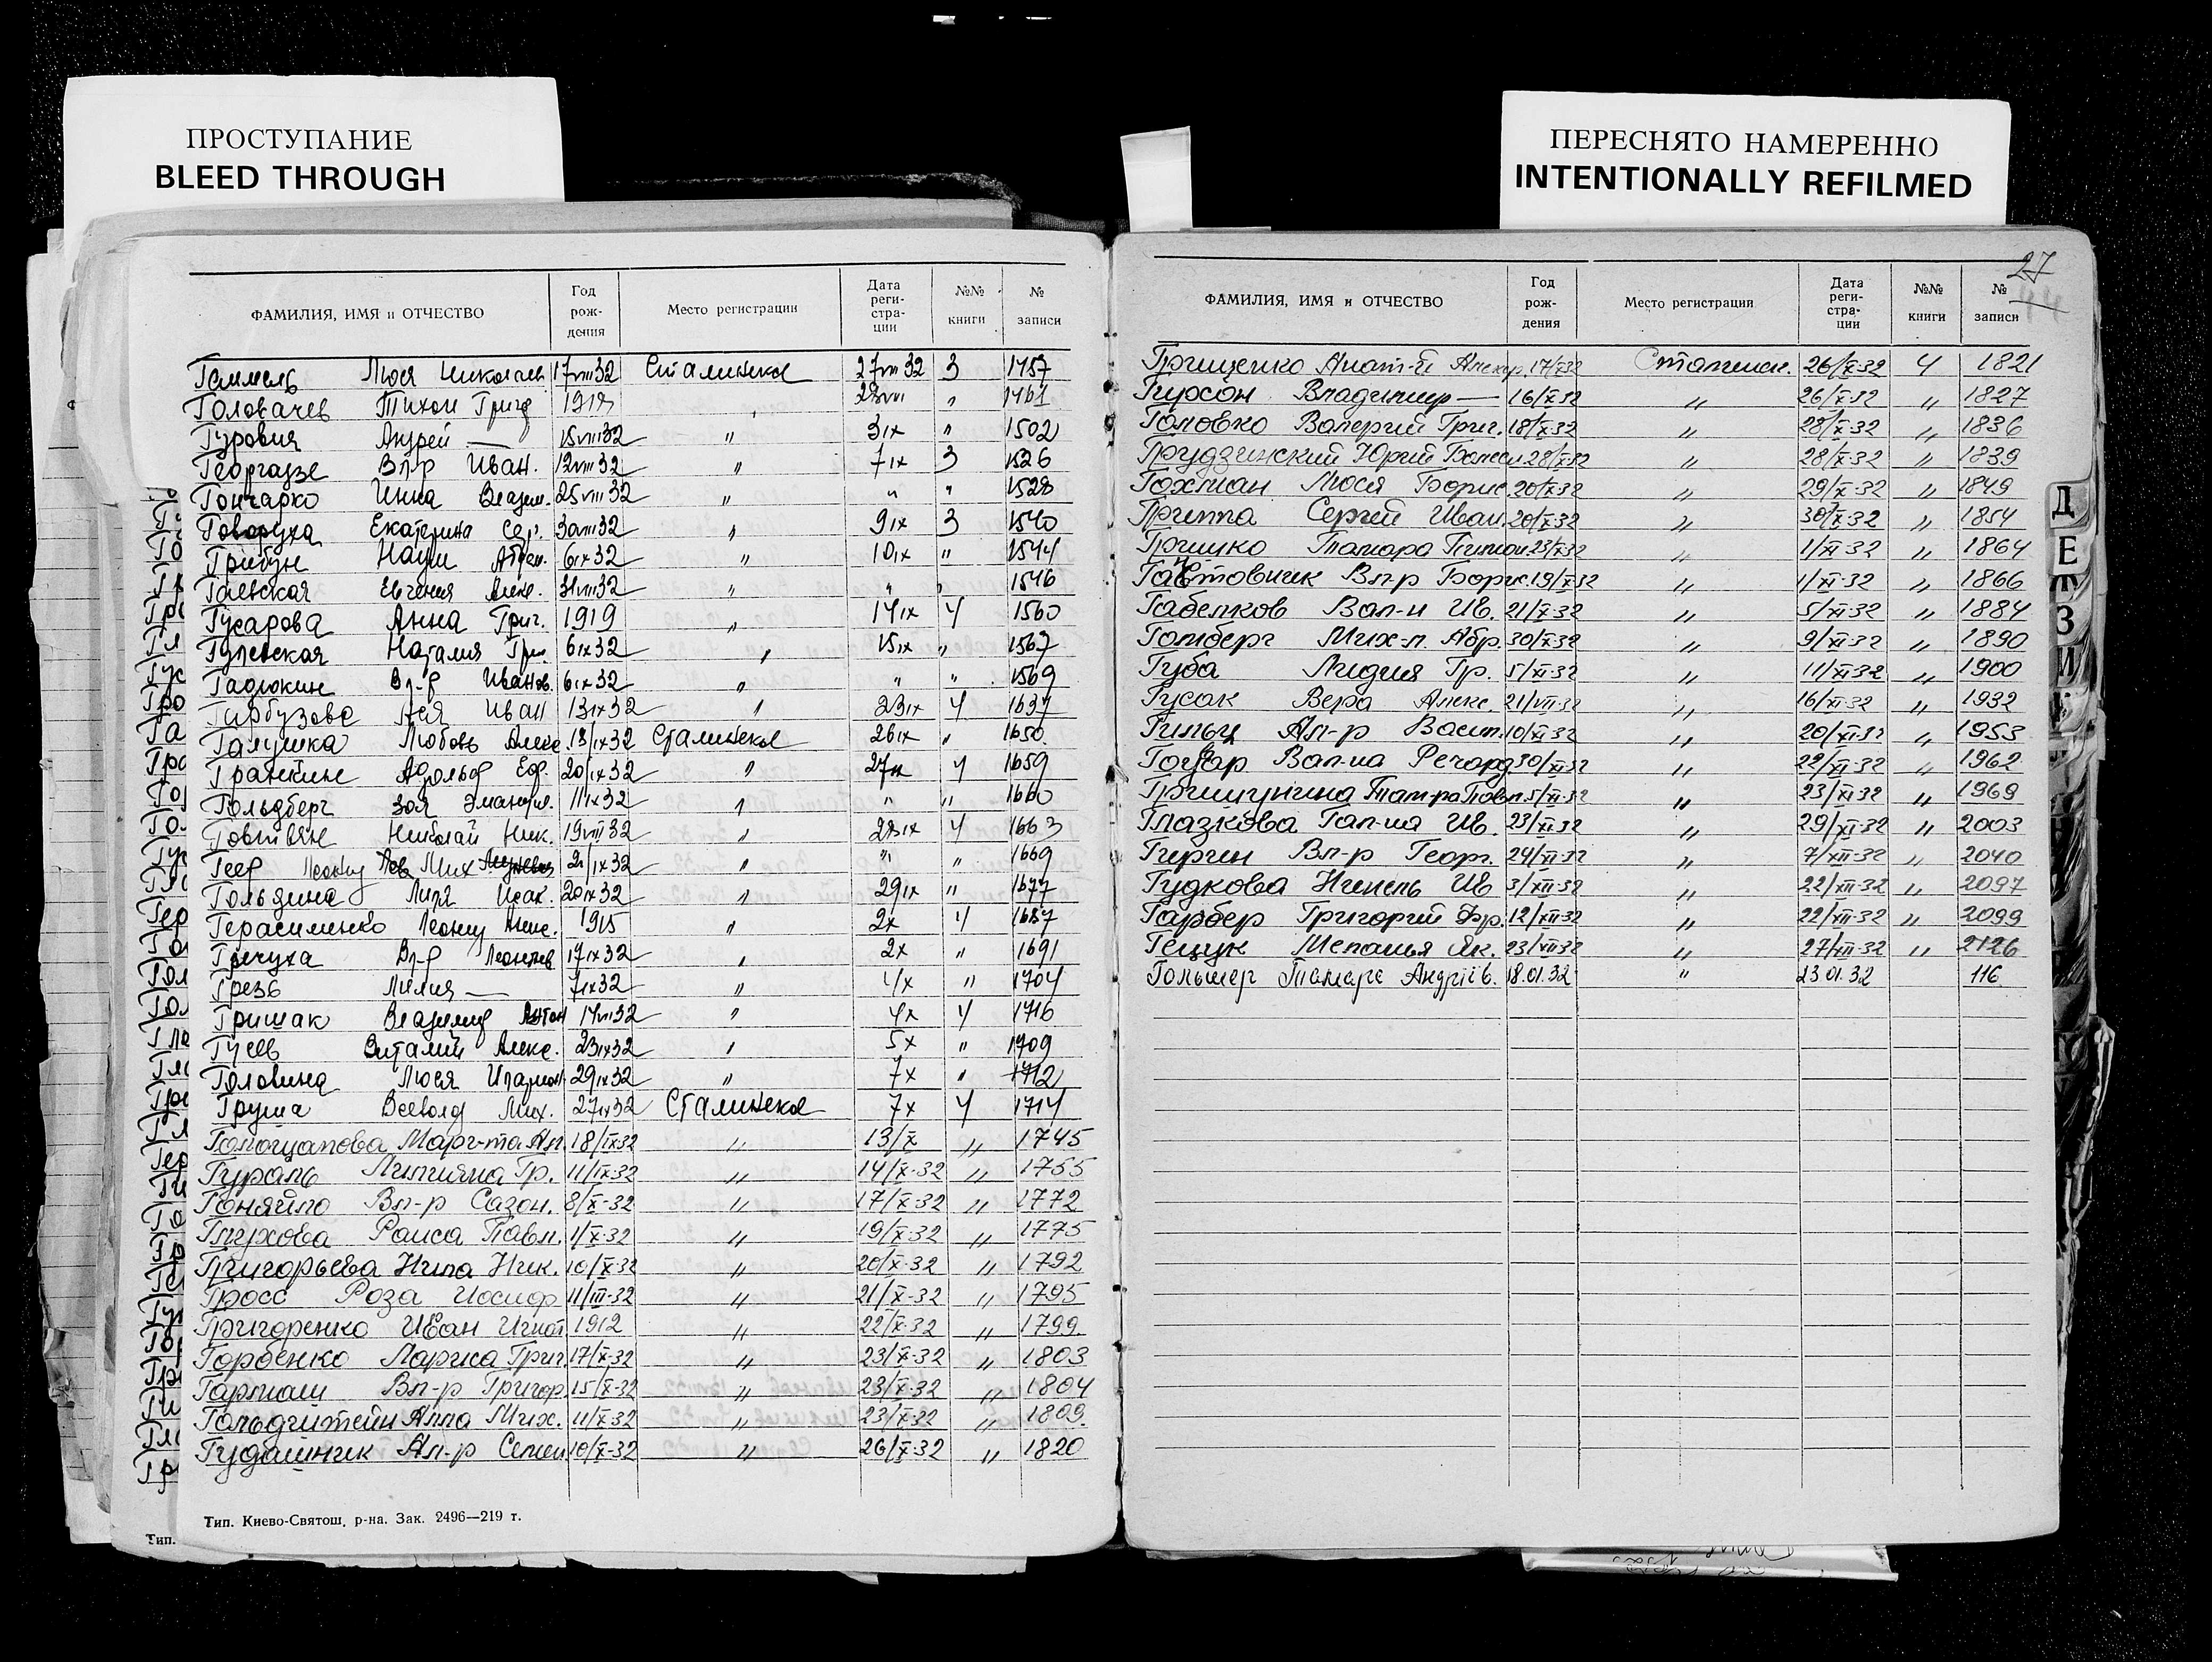 ПРОСТУПАНИЕ
BLEED THROUGH
ПЕРЕСНЯТО НАМЕРЕННО
INTENTIONALLY REFILMED
27
ФАМИЛИЯ, ИМЯ и ОТЧЕСТВО Год рож-дения Место регистрации Дата реги-стра-ции №№ книги № записи
Гаммель Люся Николаев 17 VIII 32 Сталинска 27 VIII 32 3 1457
Головачев Тихон Григ 28 VIII " 1461
Гуровия Андрей — 15 VIII 32 " 3 IX " 1502
Георгадзе Вл-р Иван. 12 VIII 32 " 7 IX 3 1526
Гончарко Инна Владим. 25 VIII 32 " " " 1528
Говоруха Екатерина Сер. 30 VIII 32 " 9 IX 3 1540
Грибун Наум 6 IX 32 " 10 IX " 1544
Гаевская Евгения Алекс. 31 VIII 32 " " " 1546
Гусарова Анна Григ. 1919 " 14 IX 4 1560
Гулевская Наталия Гри. 6 IX 32 " 15 IX " 1567
Гадюкин Вл-р Иванов. 6 IX 32 " " " 1569
Гарбузова Ася Иван 13 IX 32 " 23 IX 4 1637
Галушка Любовь Алекс. 13/IX 32 Сталинска 26 IX " 1650
Гранкин Адольф Еф. 20/IX 32 " 27 IX 4 1659
Гольдберг Зоя Эмануил. 11 IX 32 " " " 1660
Говтвян Николай Ник. 19 VIII 32 " 28 IX 4 1663
Геер Леонид Мих 2/IX 32 " " " 1669
Гользина Лиля Исак. 20 IX 32 " 29 IX " 1677
Герасименко Леонид Алекс. 1915 " 2 X 4 1687
Гречуха Вл-р Леонтев 17 IX 32 " 2 X " 1691
Грезь Лилия — 7 IX 32 " 4 X " 1704
Гришак Владимир Антон 14 VIII 32 " 4 X 4 1716
Гусев Виталий Алекс. 23 IX 32 " 5 X " 1709
Головина Люся Иларион 29 IX 32 " 7 X " 1712
Груша Всеволод Мих. 27 IX 32 Сталинска 7 X 4 1714
Голощапова Марг-та Ал. 18/IX 32 " 13/X " 1745
Гураль Лилияна Гр. 11/IX-32 " 14/X-32 " 1755
Гоняйло Вл-р Сазон. 8/X-32 " 17/X-32 " 1772
Глухова Раиса Павл. 1/X-32 " 19/X-32 " 1775
Григорьева Нила Ник. 10/X-32 " 20/X-32 " 1792
Гросс Роза Иосиф 11/III-32 " 21/X-32 " 1795
Григоренко Иван Игнат 1912 " 22/X-32 " 1799
Горбенко Лариса Григ. 17/X-32 " 23/X-32 " 1803
Гармаш Вл-р Григор. 15/X-32 " 23/X-32 " 1804
Гольдштейн Алла Мих. 11/X-32 " 23/X-32 " 1809
Гудашник Ал-р Семен 10/X-32 " 26/X-32 " 1820
Тип. Киево-Святош. р-на. Зак. 2496—219 т.
Тип.
ФАМИЛИЯ, ИМЯ и ОТЧЕСТВО Год рож-дения Место регистрации Дата реги-стра-ции №№ книги № записи
Грищенко Анат-й Алекср. 17/X-32 Сталинск. 26/X-32 4 1821
Гирсон Владимир — 16/X-32 " 26/X-32 " 1827
Головко Валерий Григ. 18/X-32 " 28/X-32 " 1836
Грудзинский Юрий 28/X-32 " 28/X-32 " 1839
Гохман Люся Борис. 20/X-32 " 29/X-32 " 1849
Гриппа Сергей Иван. 20/X-32 " 30/X-32 " 1854
Гришко Тамара Тимон 23/X-32 " 1/XI-32 " 1864
Вл-р Борис. 19/X-32 " 1/XI-32 " 1866
Габелков Вал-н Ив. 21/X-32 " 5/XI-32 " 1884
Гомберг Мих-л. Абр. 30/X-32 " 9/XI-32 " 1890
Губа Лидия Гр. 5/XI-32 " 11/XI-32 " 1900
Гусак Вера Алекс. 21/VII-32 " 16/XI-32 " 1932
Гильц Ал-р Васил. 10/XI-32 " 20/XI-32 " 1953
Вал-на Речард 30/XI-32 " 22/XI-32 " 1962
Гришунина Там-ра Павл. 5/XI-32 " 23/XI-32 " 1969
Глазкова Гал-на Ив. 23/XI-32 " 29/XI-32 " 2003
Гиргин Вл-р Георг. 24/XI-32 " 7/XII-32 " 2040
Гудкова Нинель Ив 3/XII-32 " 22/XII-32 " 2097
Гарбер Григорий Фр. 12/XII-32 " 22/XII-32 " 2099
Гещук Меланья Як. 23/XII-32 " 27/XII-32 " 2126
Гольмер Тамара Андріїв. 18.01.32 " 23.01.32 116
Д
Е
Ж
З
И